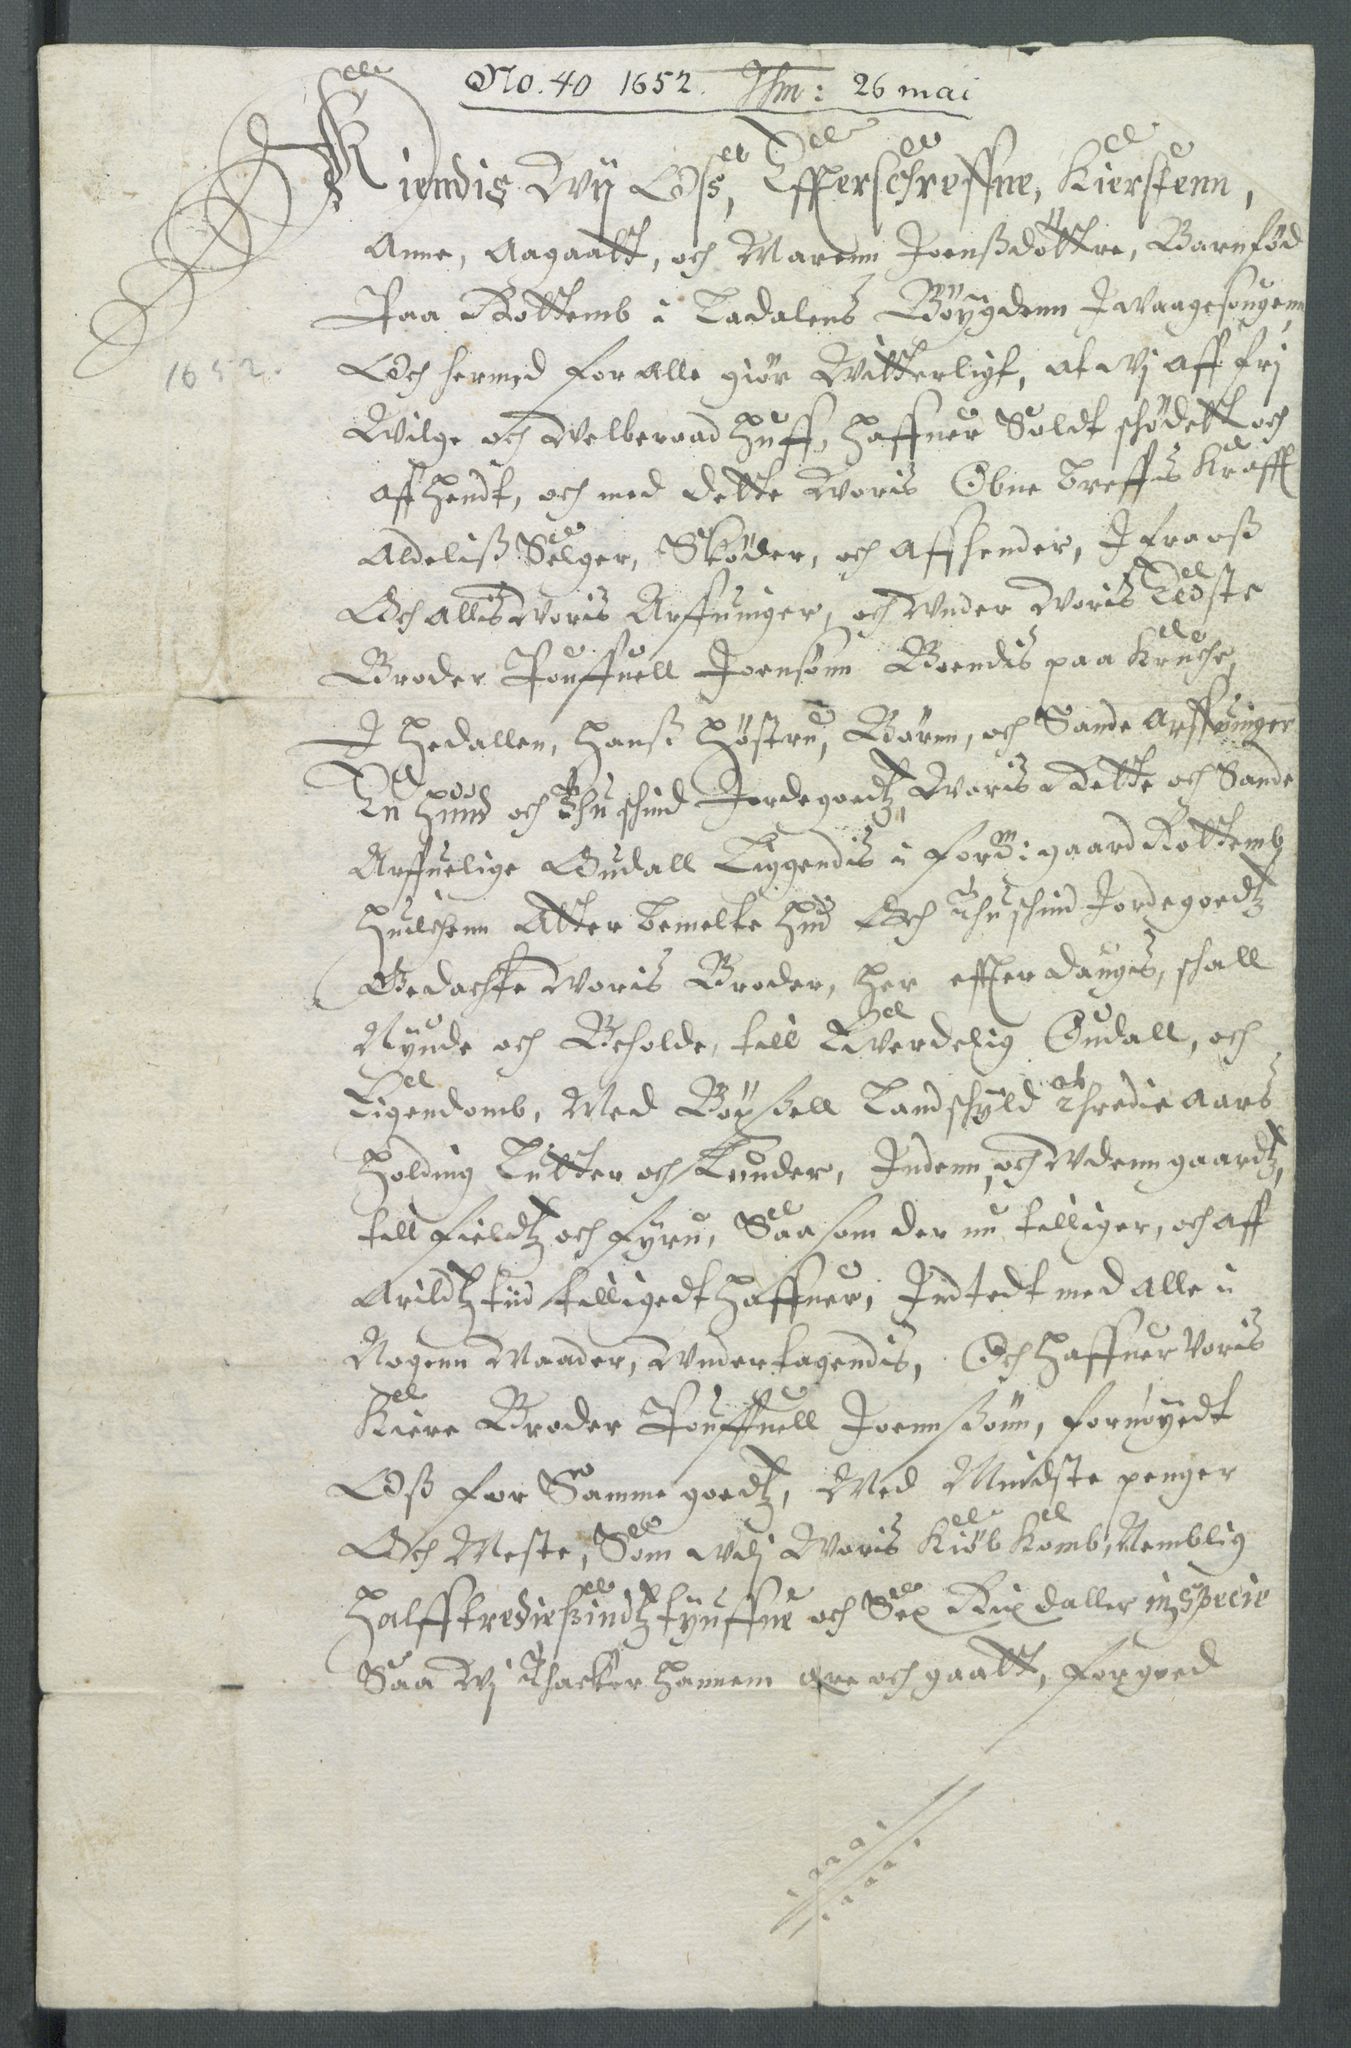 No. 40 1652. Thm: 26 mai
Kiendis Wij Oß, Effterschreffne, Kierstenn,
Anne, Aagaatt, och Marenn Joensßdöttre, Barnfød
Paa Bottemb i Ladalens Böÿgdenn J Waagesougenn
Och hermed for alle giör Witterligt, at Wj aff frj
Wilge och Welberaad Huff, Haffuer Soldt schödett och
aff hendt, och med dette Woris Obne breffuis Krafft
Aldeliß Selger, Sköder, och Affhender, J fra oß
Och allis Woris Arffuinger, och Wnder Woris Eldste
Broder Pouffuell Joensönn Boendis paa Kruche,
J Hedallen, Hanß Höstru, Börnn, och Sande Arffuinger
En Hud och Thu schind Jordegoedtz, Woris Rette och Sande
Arffuelige Oudall Liggendis i forde: gaard Bottemb
Huilchenn Atter bemelte Hud Och Thu schind Jordegoedtz
Bedachte Woris Broder, Her effter daugs, schall
Nÿude och Beholde, till Ewerdelig Oudall, och
Eigendomb, Med Böxßell Landschÿld Thredie Aars
Holding Lutter och Lunder, Indenn, och Wdenn gaardtz,
till fieldtz och fÿru, Saa som der nu tilliger, och aff
Arildtz tiid tilligedt Haffuer, Jndtedt med alle i
Nogenn Maader, Wndertagendis, Och Haffuer Voris
Kiere Broder Pouffuell Joennßönn, fornöÿedt
Oß for Samme goedtz, Med Mindste penger
Och Meste, Som Wdj Woris Kiöb Komb, Nemblig
Halfftredießindtztÿuffue och Sex Rixdaller in Specie
Saa Wj Thacker Hannem ære och gaatt, for goed
1652.